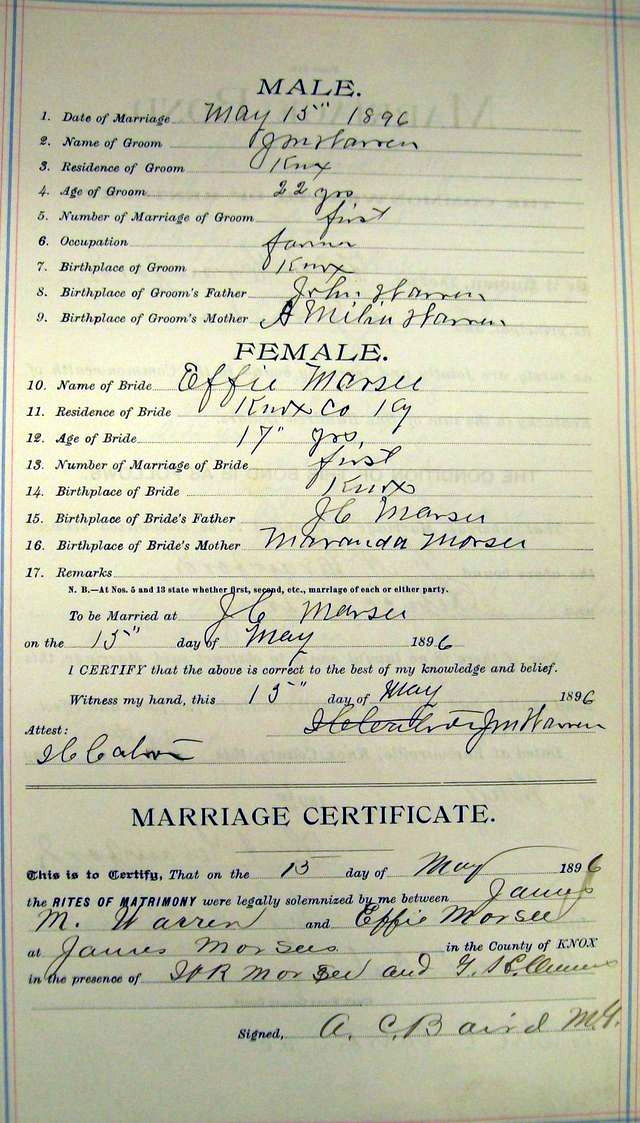 MALE.
1. Date of Marriage May 15" 1896
2. Name of Groom J M Warren
3. Residence of Groom Knox
4. Age of Groom 22 yrs
5. Number of Marriage of Groom first
6. Occupation farmer
7. Birthplace of Groom Knox
8. Birthplace of Groom's Father John Warren
9. Birthplace of Groom's Mother Warren
FEMALE.
10. Name of Bride Effie Marsee
11. Residence of Bride Knox Co Ky
12. Age of Bride 17" yrs,
13. Number of Marriage of Bride first
14. Birthplace of Bride Knox
15. Birthplace of Bride's Father J C Marsee
16. Birthplace of Bride's Mother Maranda Morsee
17. Remarks
N. B.—At Nos. 5 and 13 state whether first, second, etc., marriage of each or either party.
To be Married at J C Marsee
on the 15" day of May 1896
I CERTIFY that the above is correct to the best of my knowledge and belief.
Witness my hand, this 15" day of May 1896
J M Warren
Attest:
MARRIAGE CERTIFICATE.
This is to Certify, That on the 15 day of May 1896
the RITES OF MATRIMONY were legally solemnized by me between James
M. Warren and Effie Morsee
at James Morsees in the County of KNOX
in the presence of and
Signed, A. C. Baird M.G.